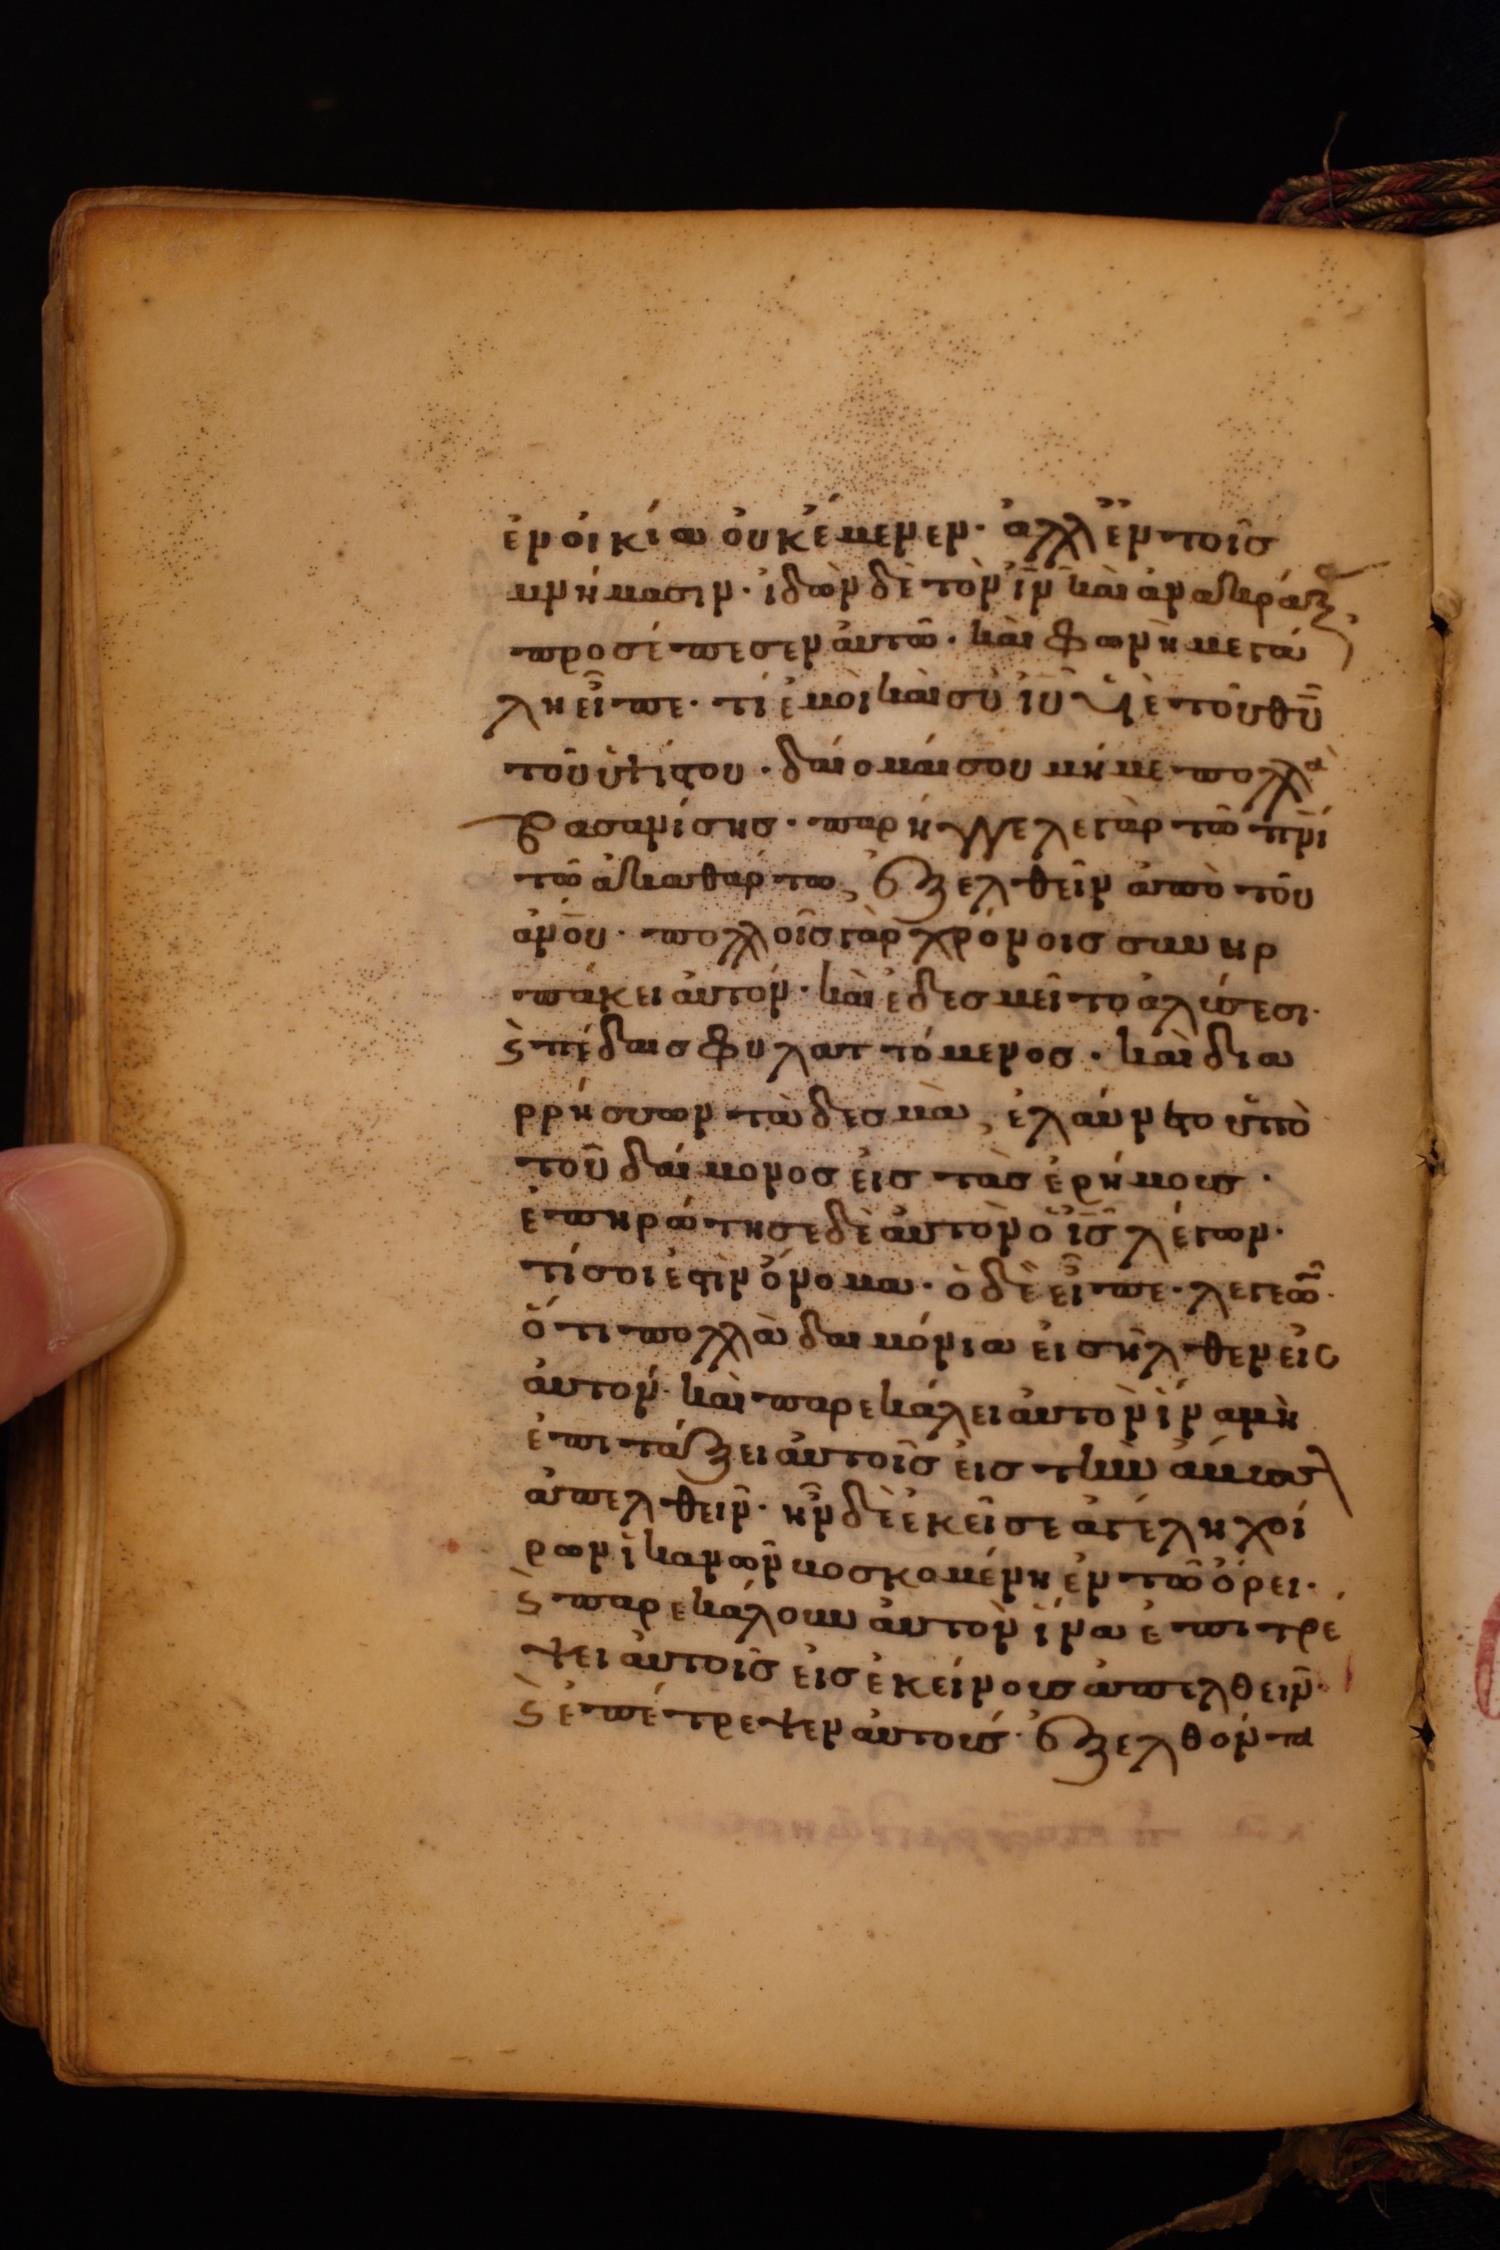 ἐν οἰκία οὐκ ἔμενεν· ἀλλ' ἐν τοῖσ
μνήμασιν· ἰδὼν δὲ τὸν ιν̅ καὶ ἀνακράξ
προσέπεσεν αὐτῶ· καὶ φωνῆ μεγά
λη εἶπε· τί ἐμοὶ καὶ σύ ιυ̅ υἱὲ τοῦ θυ̅
τοῦ ὑψίστου· δέομαί σου μή με πολλὰ
βασανίσησ· παρήγγελε γὰρ τῶ πνι̅
τῶ ἀκαθάρτω, ἐξελθεῖν ἀπὸ τοῦ
ἀνο̅υ· πολλοῖσ γὰρ χρόνοισ συνηρ
πάκει αὐτόν· καὶ ἐδεσμεῖτο ἁλύσεσι·
ϛ̀ πέδαισ φυλαττόμενοσ· καὶ δια
ρρήσσων τὰ δεσμὰ, ἐλαύνετο ὑπὸ
τοῦ δαίμονοσ εἰσ τὰσ ἐρήμουσ·
ἐπηρώτησε δὲ αὐτὸν ὁ ισ̅ λέγων·
τί σοι ἐστὶν ὄνομα· ὁ δὲ εἶπε· λεγεῶ̅·
ὅτι πολλὰ δαιμόνια εἰσῆλθεν εἰσ
αὐτόν· καὶ παρεκάλει αὐτὸν ἵνα μὴ
ἐπιτάξει αὐτοῖσ εἰσ τὴν ἄβυσσ
ἀπελθεῖν· ἦν δὲ ἐκεῖσε ἀγέλη χοί
ρων ἱκανῶν βοσκομένη ἐν τῶ ὄρει·
ϛ̀ παρεκάλουν αὐτὸν ἵνα ἐπιτρέ
ψει αὐτοῖσ εἰσ ἐκείνουσ ἀπελθεῖν·
ϛ̀ ἐπέτρεψεν αὐτοῖσ· ἐξελθόντα